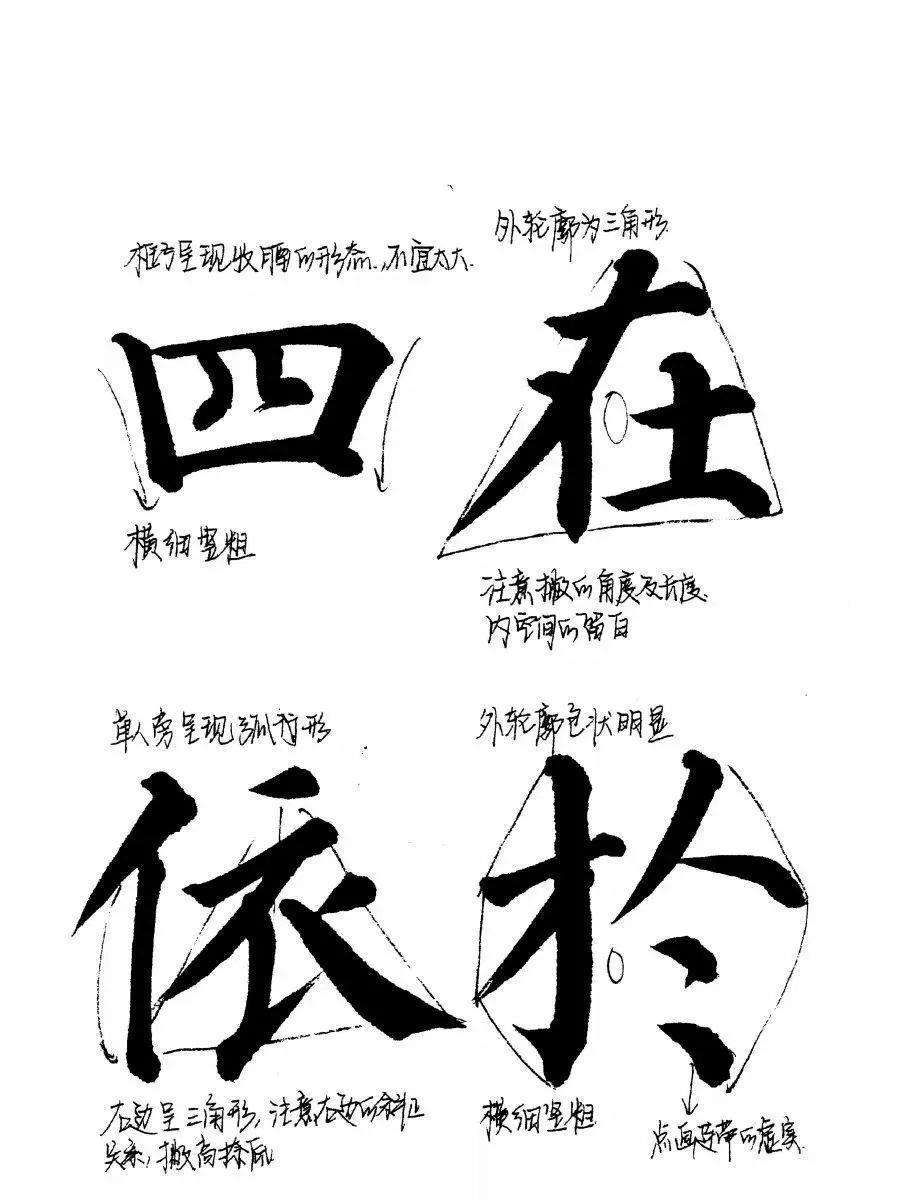 框呈现收腰的形态,不宜太大.
四
横细竖粗
外轮廓为三角形
在
注意撇的角度及长度.
内空间的留白
单人旁呈现弧行形
依
右边呈三角形,注意右边的斜正
关系,撇高捺低
外轮廓包状明显
於
横细竖粗
点画连带的虚实.